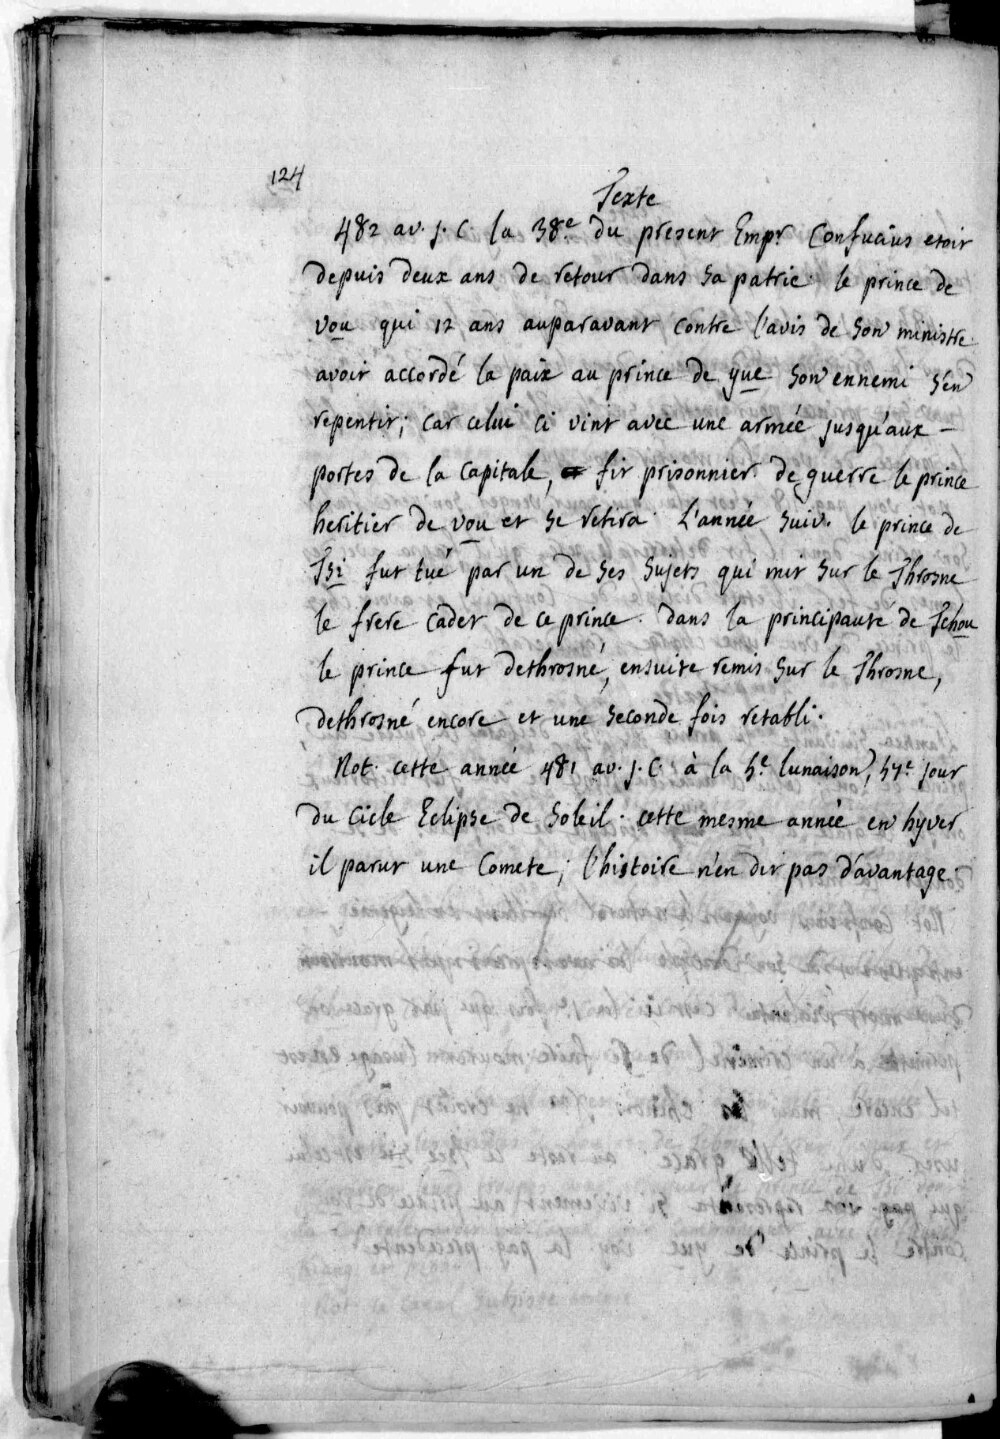 124
Texte
482 av. J. C. la 38e du present Empr Confucius etoit
depuis deux ans de retour dans sa patrie. le prince de
vou qui 12 ans auparavant contre l'avis de son ministre
avoit accordé la paix au prince de yue son ennemi s'en
repentit; car celui ci vint avec une armée jusqu'aux
portes de la capitale, fit prisonnier de guerre le prince
heritier de vou et se retira. L'année suiv. le prince de
Tsi fut tué par un de ses sujets qui mit sur le Throsne
le frere cadet de ce prince. dans la principauté de Tchou
le prince fut dethrosné, ensuite remis sur le Throsne,
dethrosné encore et une seconde fois retabli.
Not. cette année 481 av. J. C. à la 5e lunaison, 57e jour
du Cicle Eclipse de Soleil. cette mesme année en hyver
il parut une Comete; l'histoire n'en dit pas d'avantage.